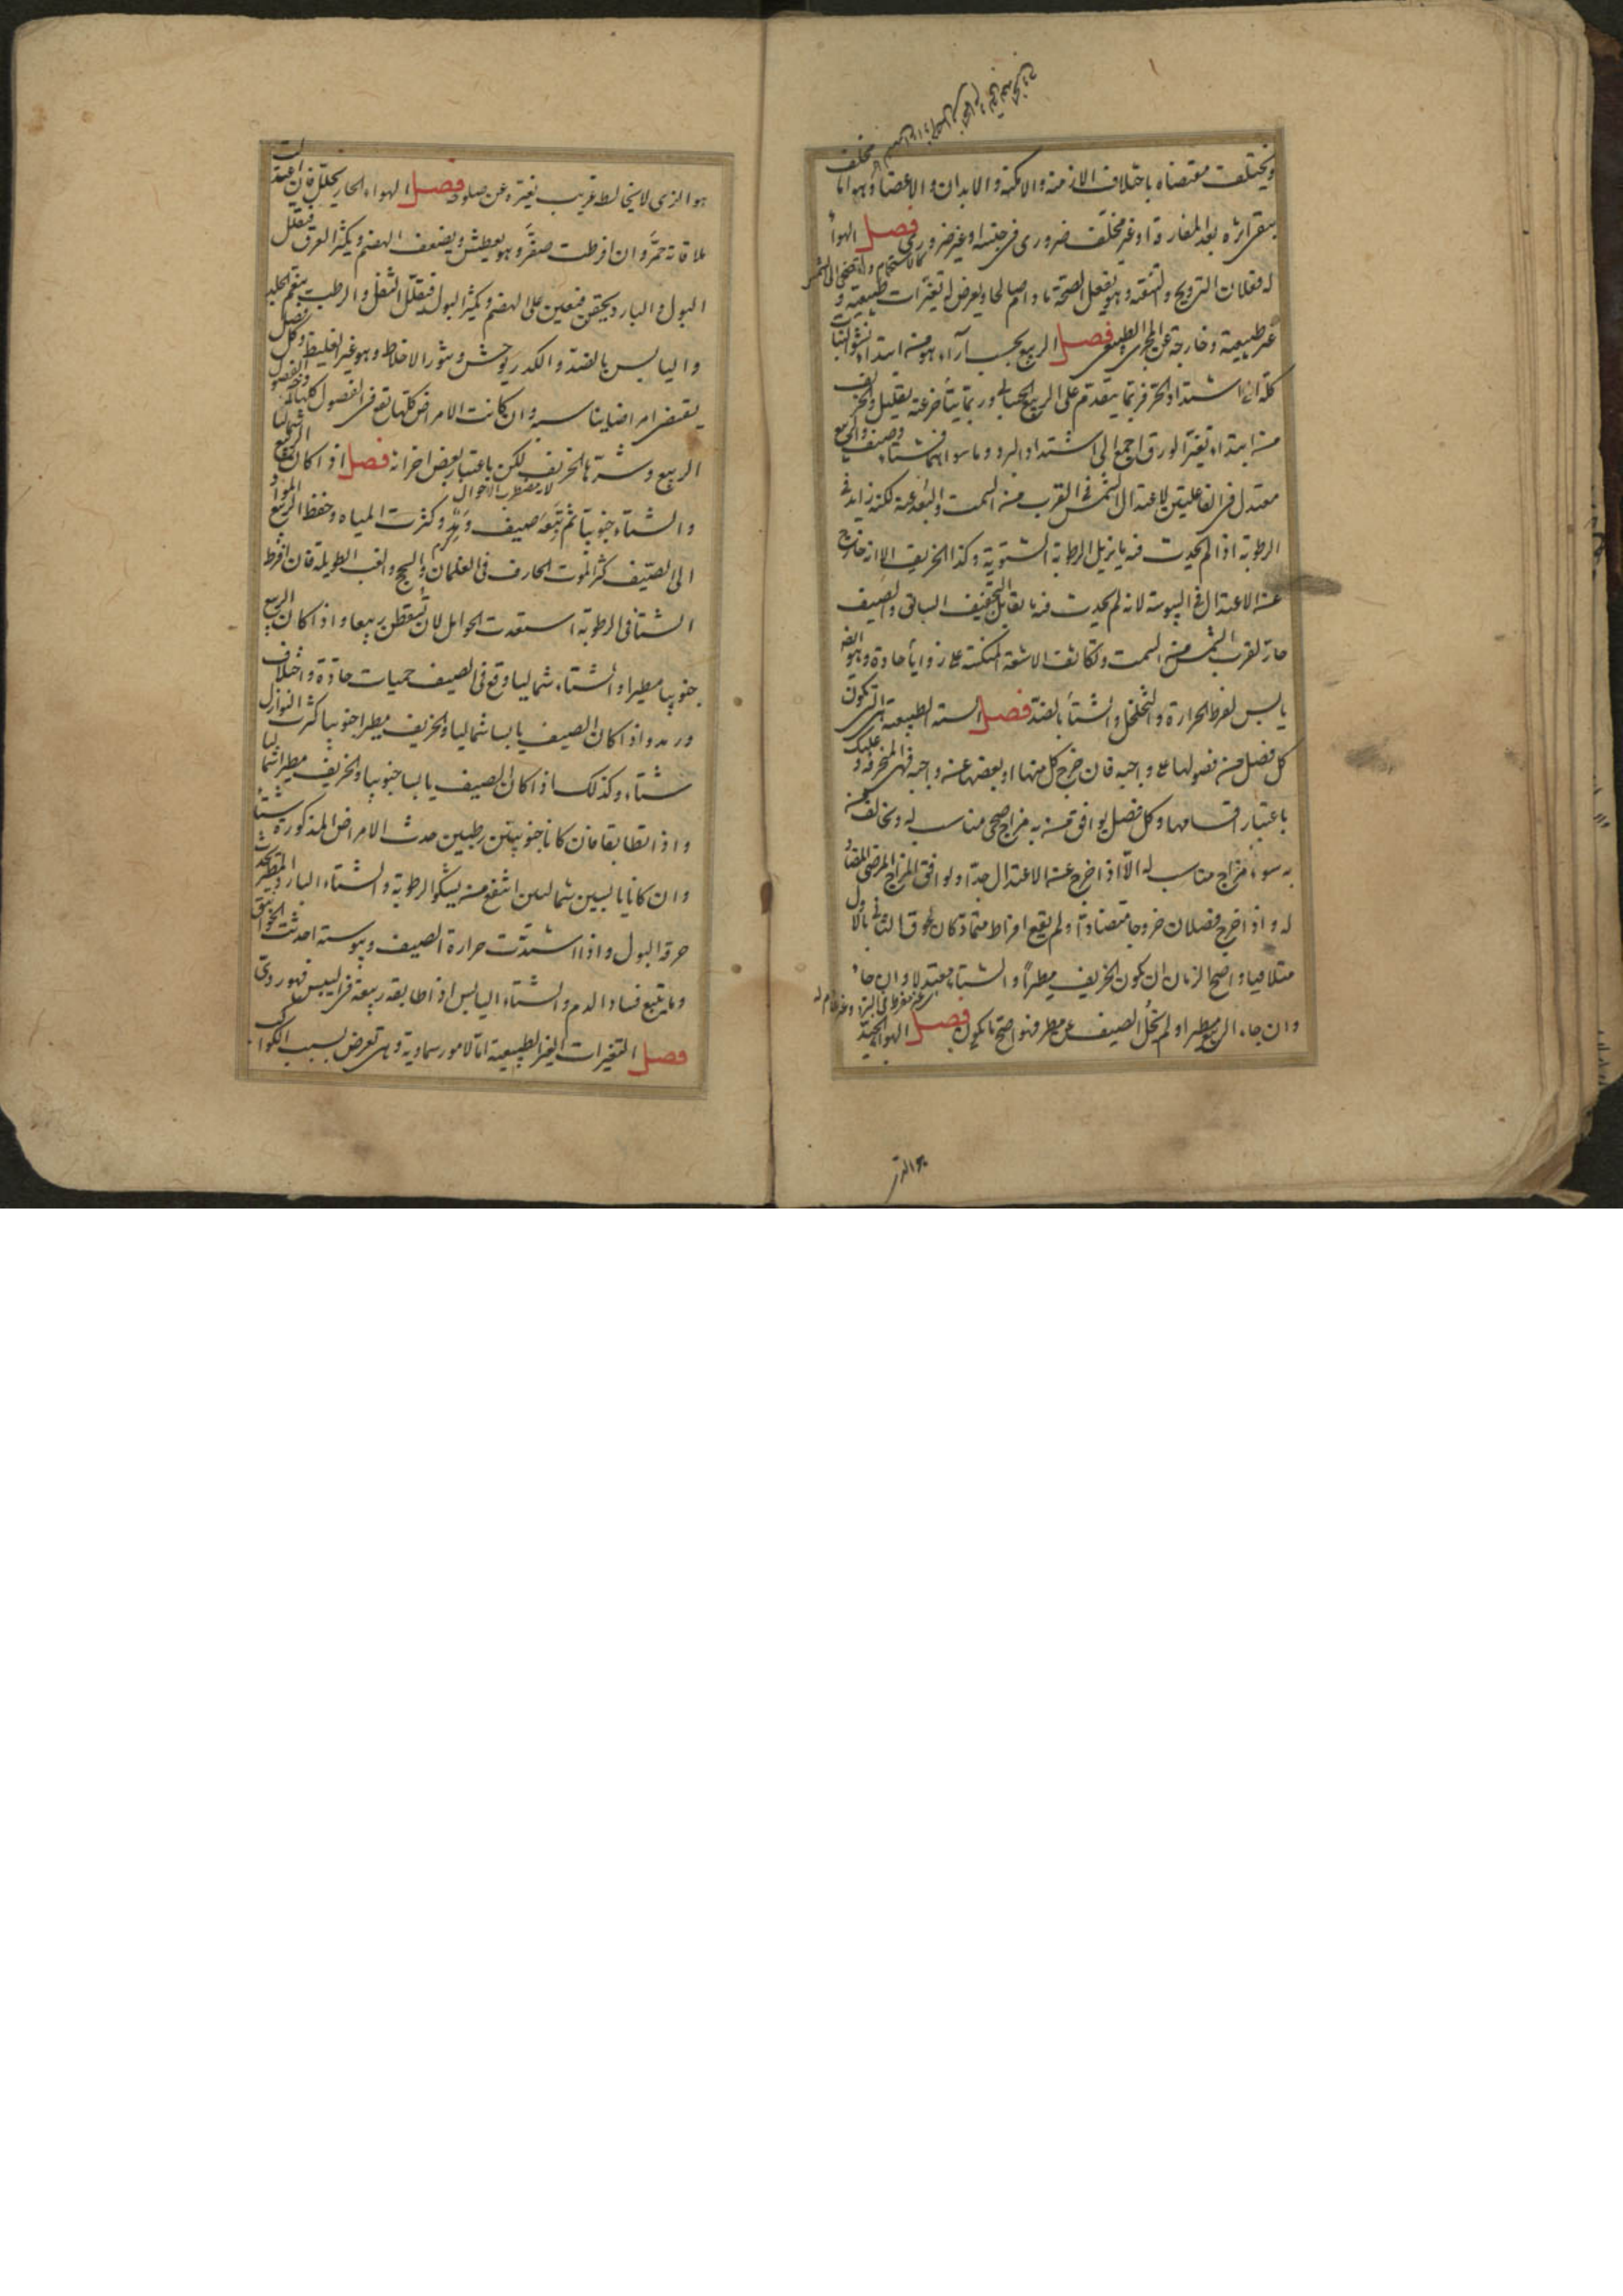 ويختلف مقتضاه باختلاف الازمنة والامكنة والابدان والاعضاء وهو اما مخلف
يبقى اثره بعد المفارقة او غير مخلف ضرورى فى جنسه او غير ضرورى فصل الهواء
كالاستحمام والتضحى الى الشمس
له فعلان الترويح والتنقية وهو يفعل الصحة ما دام صالحا ويعرض له تغيرات طبيعية و
غير طبيعية وخارجة عن المجرى الطبيعى فصل الربيع بحسب آراء هو من ابتداء نشو النبات
كله الى اشتداد الحر فربما يتقدم على الربيع الحسابى وربما يتأخر عنه بقليل والخريف
من ابتداء تغير الورق اجمع الى اشتداد البرد وما سواهما شتاء وصيف والربيع
معتدل فى الفاعليتين لاعتدال الشمس فى القرب من السمت والبعد عنه لكنه زايد فى
الرطوبة اذ لم يحدث فيه ما يزيل الرطوبة الشتوية وكذا الخريف الا انه خارج
عن الاعتدال فى اليبوسة لانه لم يحدث فيه ما يقابل التجفيف السابق والصيف
حار لقرب الشمس من السمت وتكاثف الاشعة المنعكسة على زوايا حادة وهو ايضا
يابس لفرط الحرارة والتخلخل والشتاء بالضد فصل السنة الطبيعية التى تكون
كل فصل من فصولها على واجبه فان خرج كل منها او بعضها عن واجبه فهى المنحرفة وعليك
باعتبار اقسامها وكل فصل يوافق من به مزاج صحى مناسب له ويخالف من
به سوء مزاج مناسب له الا اذا خرج عن الاعتدال جدا ويوافق المزاج المرضى المضاد
له واذا خرج فصلان خروجا متضادا ولم يقع افراط متماد كان لحوق الثانى بالاول
متلافيا واصح الزمان ان يكون الخريف مطيرا والشتاء معتدلا وان جاء
غير مفرط فى البرد وغير عادم له
وان جاء الربيع مطيرا ولم يخل الصيف عن مطر فهو اصح ما يكون فصل الهواء الجيد
هو الذى
هو الذى لا يخالطه غريب يغيره عن صلوحه فصل الهواء الحار يحلل فان اعتدلت
ملاقاته حمر وان افرطت صفر وهو يعطش ويضعف الهضم ويكثر العرق فيقلل
البول والبارد يحقن فيعين على الهضم ويكثر البول فيقلل الثفل والرطب ينعم الجلد
واليابس بالضد والكدر يوحش ويثور الاخلاط وهو غير الغليظ وكل فصل
يقتضى امراضا يناسبه وان كانت الامراض كلها تقع فى الفصول كلها وخير الفصول
الربيع وشرها الخريف لكن باعتبار بعض اخر انه فصل اذا كان الربيع شماليا
لانه مضطرب الاحوال
والشتاء جنوبيا ثم تبعه صيف ومد وكثرت المياه وحفظ الربيع المواد
الى الصيف كثر الموت الجارف فى الغلمان والسحج والغب الطويلة فان افرط
الشتا فى الرطوبة استعدت الحوامل لان تسقطن ربيعا واذا كان الربيع
جنوبيا مطيرا والشتاء شماليا وقع فى الصيف حميات حادة واختلاف
ورمد واذا كان الصيف يابسا شماليا والخريف مطيرا جنوبيا كثرت النوازل
شتاء وكذلك اذا كان الصيف يابسا جنوبيا والخريف مطيرا شماليا
واذا تطابقا فان كانا جنوبيين رطبين حدث الامراض المذكورة شتاء
وان كانا يابسين شماليين انتفع من يشكو الرطوبة والشتاء البارد المطير يحدث
حرقة البول واذا اشتدت حرارة الصيف ويبوسته احدثت الخوانيق
وما يتبع فساد الدم والشتاء اليابس اذا طابقه ربيعه فى اليبس فهو ردى
فصل التغيرات الغير الطبيعية اما لامور سماوية وهى تعرض بسبب الكواكب